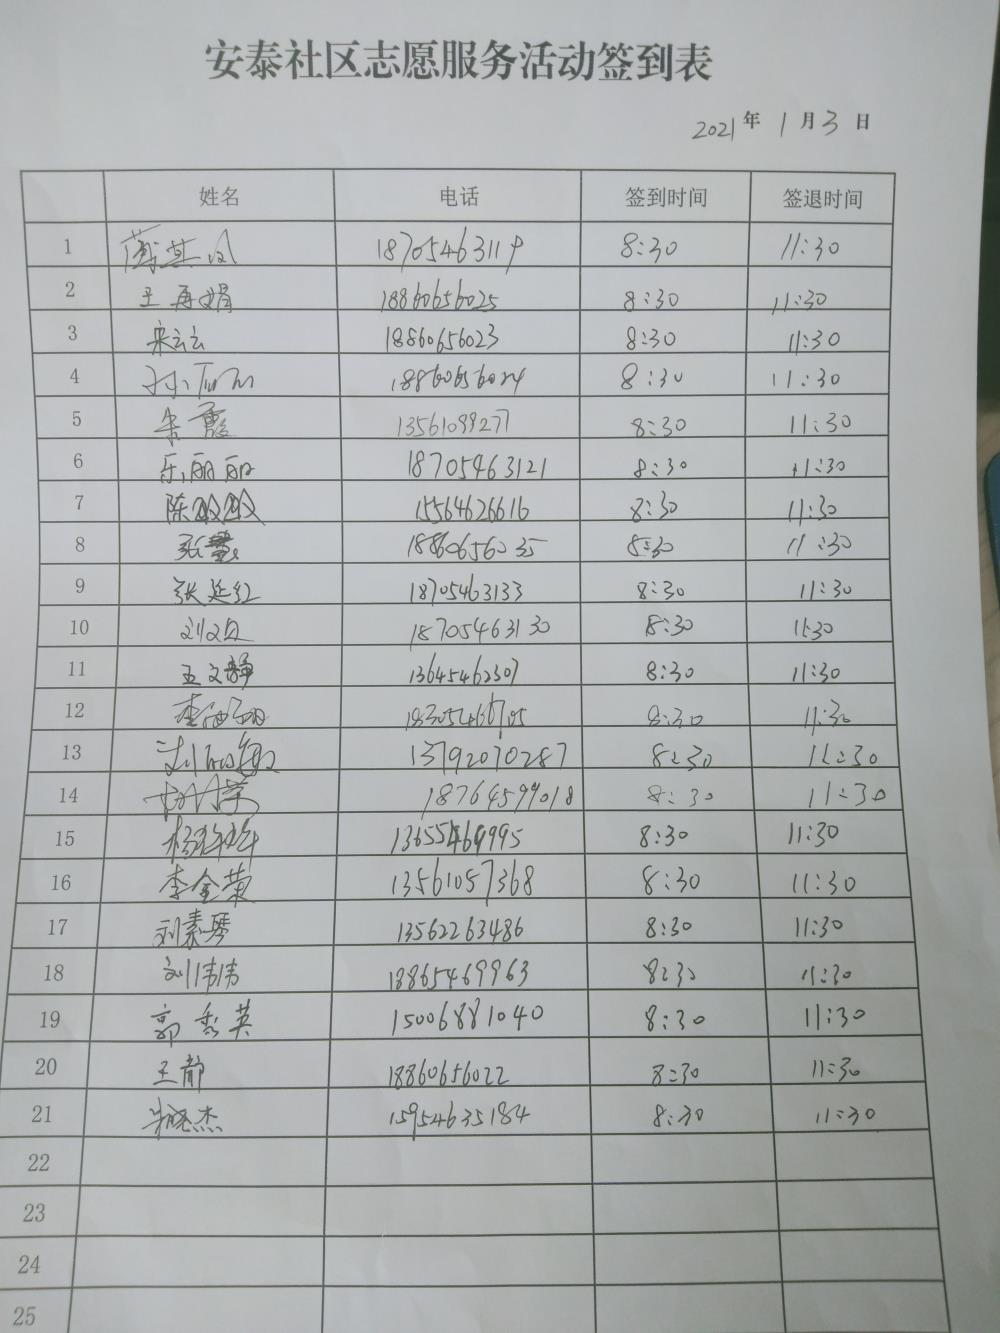 安泰社区志愿服务活动签到表
2021年 1月3日
姓名 电话 签到时间 签退时间
1 8:30 11:30
2 王再娟 18860656025 8:30 11:30
3 宋云云 18860656023 8:30 11:30
4 18860656024 8:30 11:30
5 朱霞 13561099277 8:30 11:30
6 乐丽丽 18705463121 8:30 11:30
7 陈敏敏 15564626616 8:30 11:30
8 张慧 18860656035 8:30 11:30
9 张延红 18705463133 8:30 11:30
10 18705463130 8:30 11:30
11 王文静 13645462307 8:30 11:30
12 8:30 11:30
13 13792070287 8:30 11:30
14 18764599018 8:30 11:30
15 13655469995 8:30 11:30
16 李金荣 13561057368 8:30 11:30
17 刘素琴 13562263486 8:30 11:30
18 刘伟伟 18865469963 8:30 11:30
19 郭秀英 15006881040 8:30 11:30
20 王静 18860656022 8:30 11:30
21 15954635184 8:30 11:30
22
23
24
25